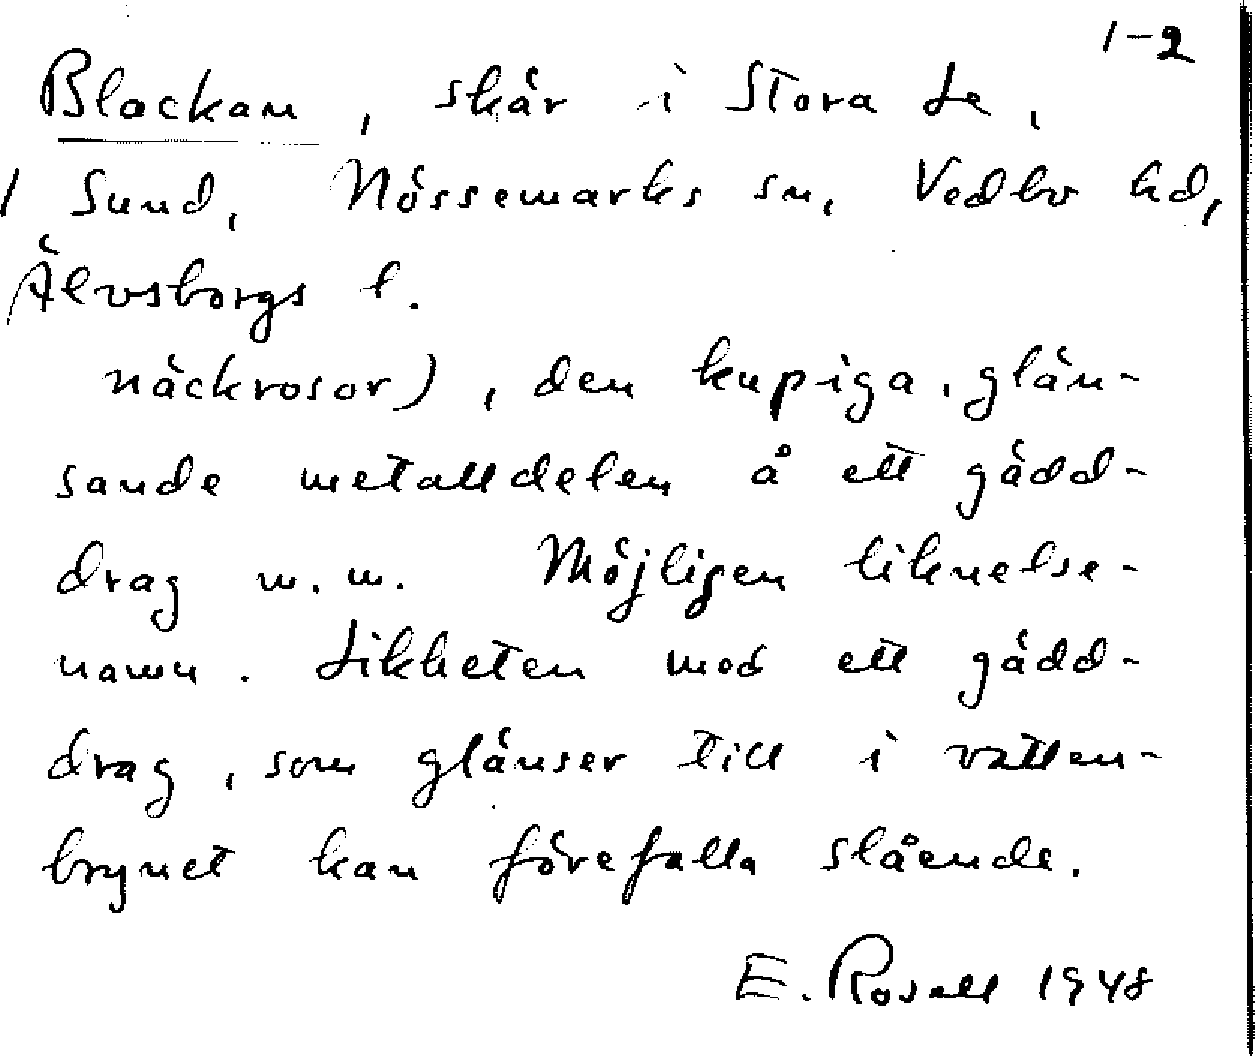 1-2
Blackan, skär i Stora Le,
/ Sund, Nössemarks sn, Vedbo hd,
Älvsborgs l.
näckrosor), den kupiga, glän-
sande metalldelen å ett gädd-
drag m.m. Möjligen liknelse-
namn. Likheten med ett gädd-
drag, som glänser till i vatten-
brynet kan förefalla slående.
E. Rosell 1948